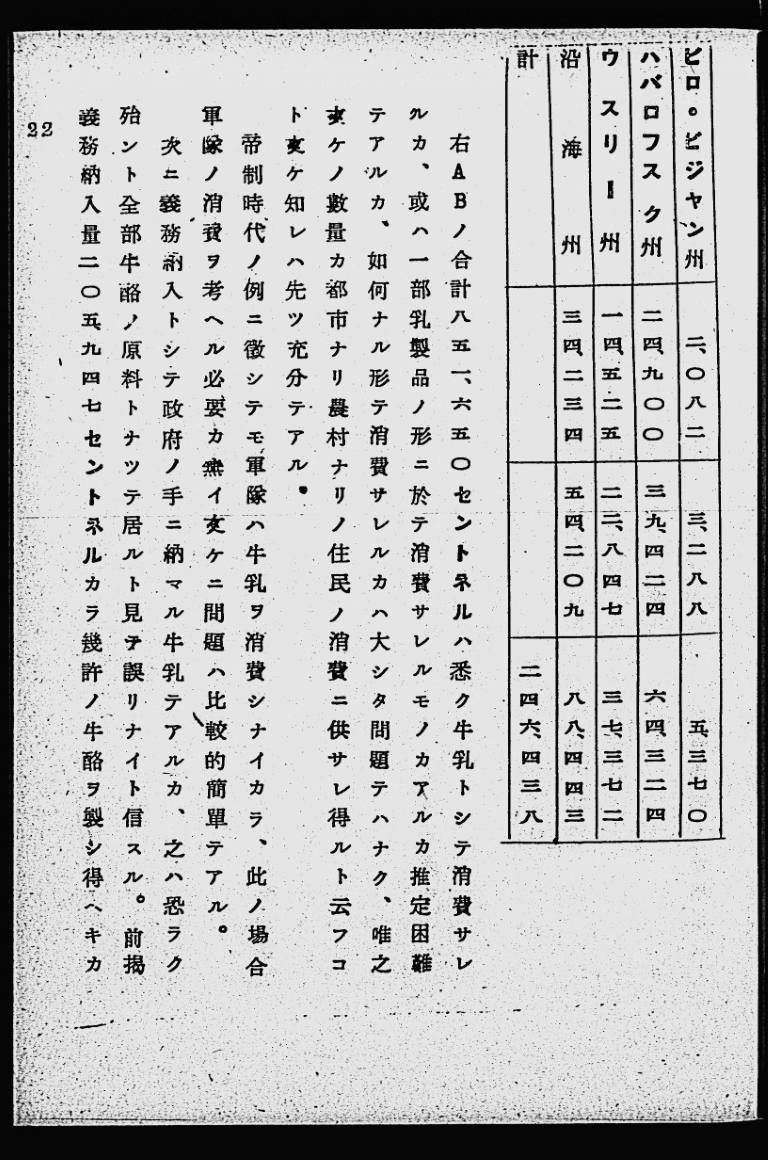 ビロ。ビジャン州 二、〇八二 三、二八八 五、三七〇
ハバロフスク州 二四、九〇〇 三九、四二四 六四、三二四
ウスリー州 一四、五二五 二二、八四七 三七、三七二
沿海州 三四、二三四 五四、二〇九 八八、四四三
計 二四六、四三八
右ABノ合計八五一、六五〇セントネルハ悉ク牛乳トシテ消費サレ
ルカ、或ハ一部乳製品ノ形ニ於テ消費サレルモノカアルカ推定困難
テアルカ、如何ナル形テ消費サレルカハ大シタ問題テハナク、唯之
丈ケノ數量カ都市ナリ農村ナリノ住民ノ消費ニ供サレ得ルト云フコ
ト丈ケ知レハ先ツ充分テアル。
帝制時代ノ例ニ徴シテモ軍隊ハ牛乳ヲ消費シナイカラ、此ノ場合
軍隊ノ消費ヲ考ヘル必要カ無イ丈ケニ問題ハ比較的簡單テアル。
次ニ義務納入トシテ政府ノ手ニ納マル牛乳テアルカ、之ハ恐ラク
殆ント全部牛酪ノ原料トナツテ居ルト見テ誤リナイト信スル。前揭
義務納入量二〇五、九四七セントネルカラ幾許ノ牛酪ヲ製シ得ヘキカ
22